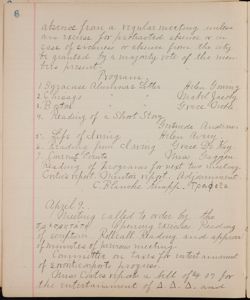 6
absence from a regular meeting unless
an excuse for protracted absence or in
case of sickness or absence from the city
be granted by a majority vote of the mem
bers present.
Program.
1 Syracuse Alumnae Letter Helen Gowing
2 Chicago " " Mabel Jacoby
3. Boston " " Grace
4. Reading of a Short Story
Gertrude
5. Life of Loring Helen Avery.
6. Reading from Loring Grace
7. Current Events Miss
Reading of programs for next two meetings
Critics report. Minutes report. Adjournment.
C. Blanche Knapp,
April 9.
Meeting called to order by the
Opening exercise Reading
of symphony. Roll call. Reading and approval
of minutes of previous meeting.
Committee on taxes for entertainment
of reports progress.
Miss reports a bill of for
the entertainment of Δ. Δ. Δ. and